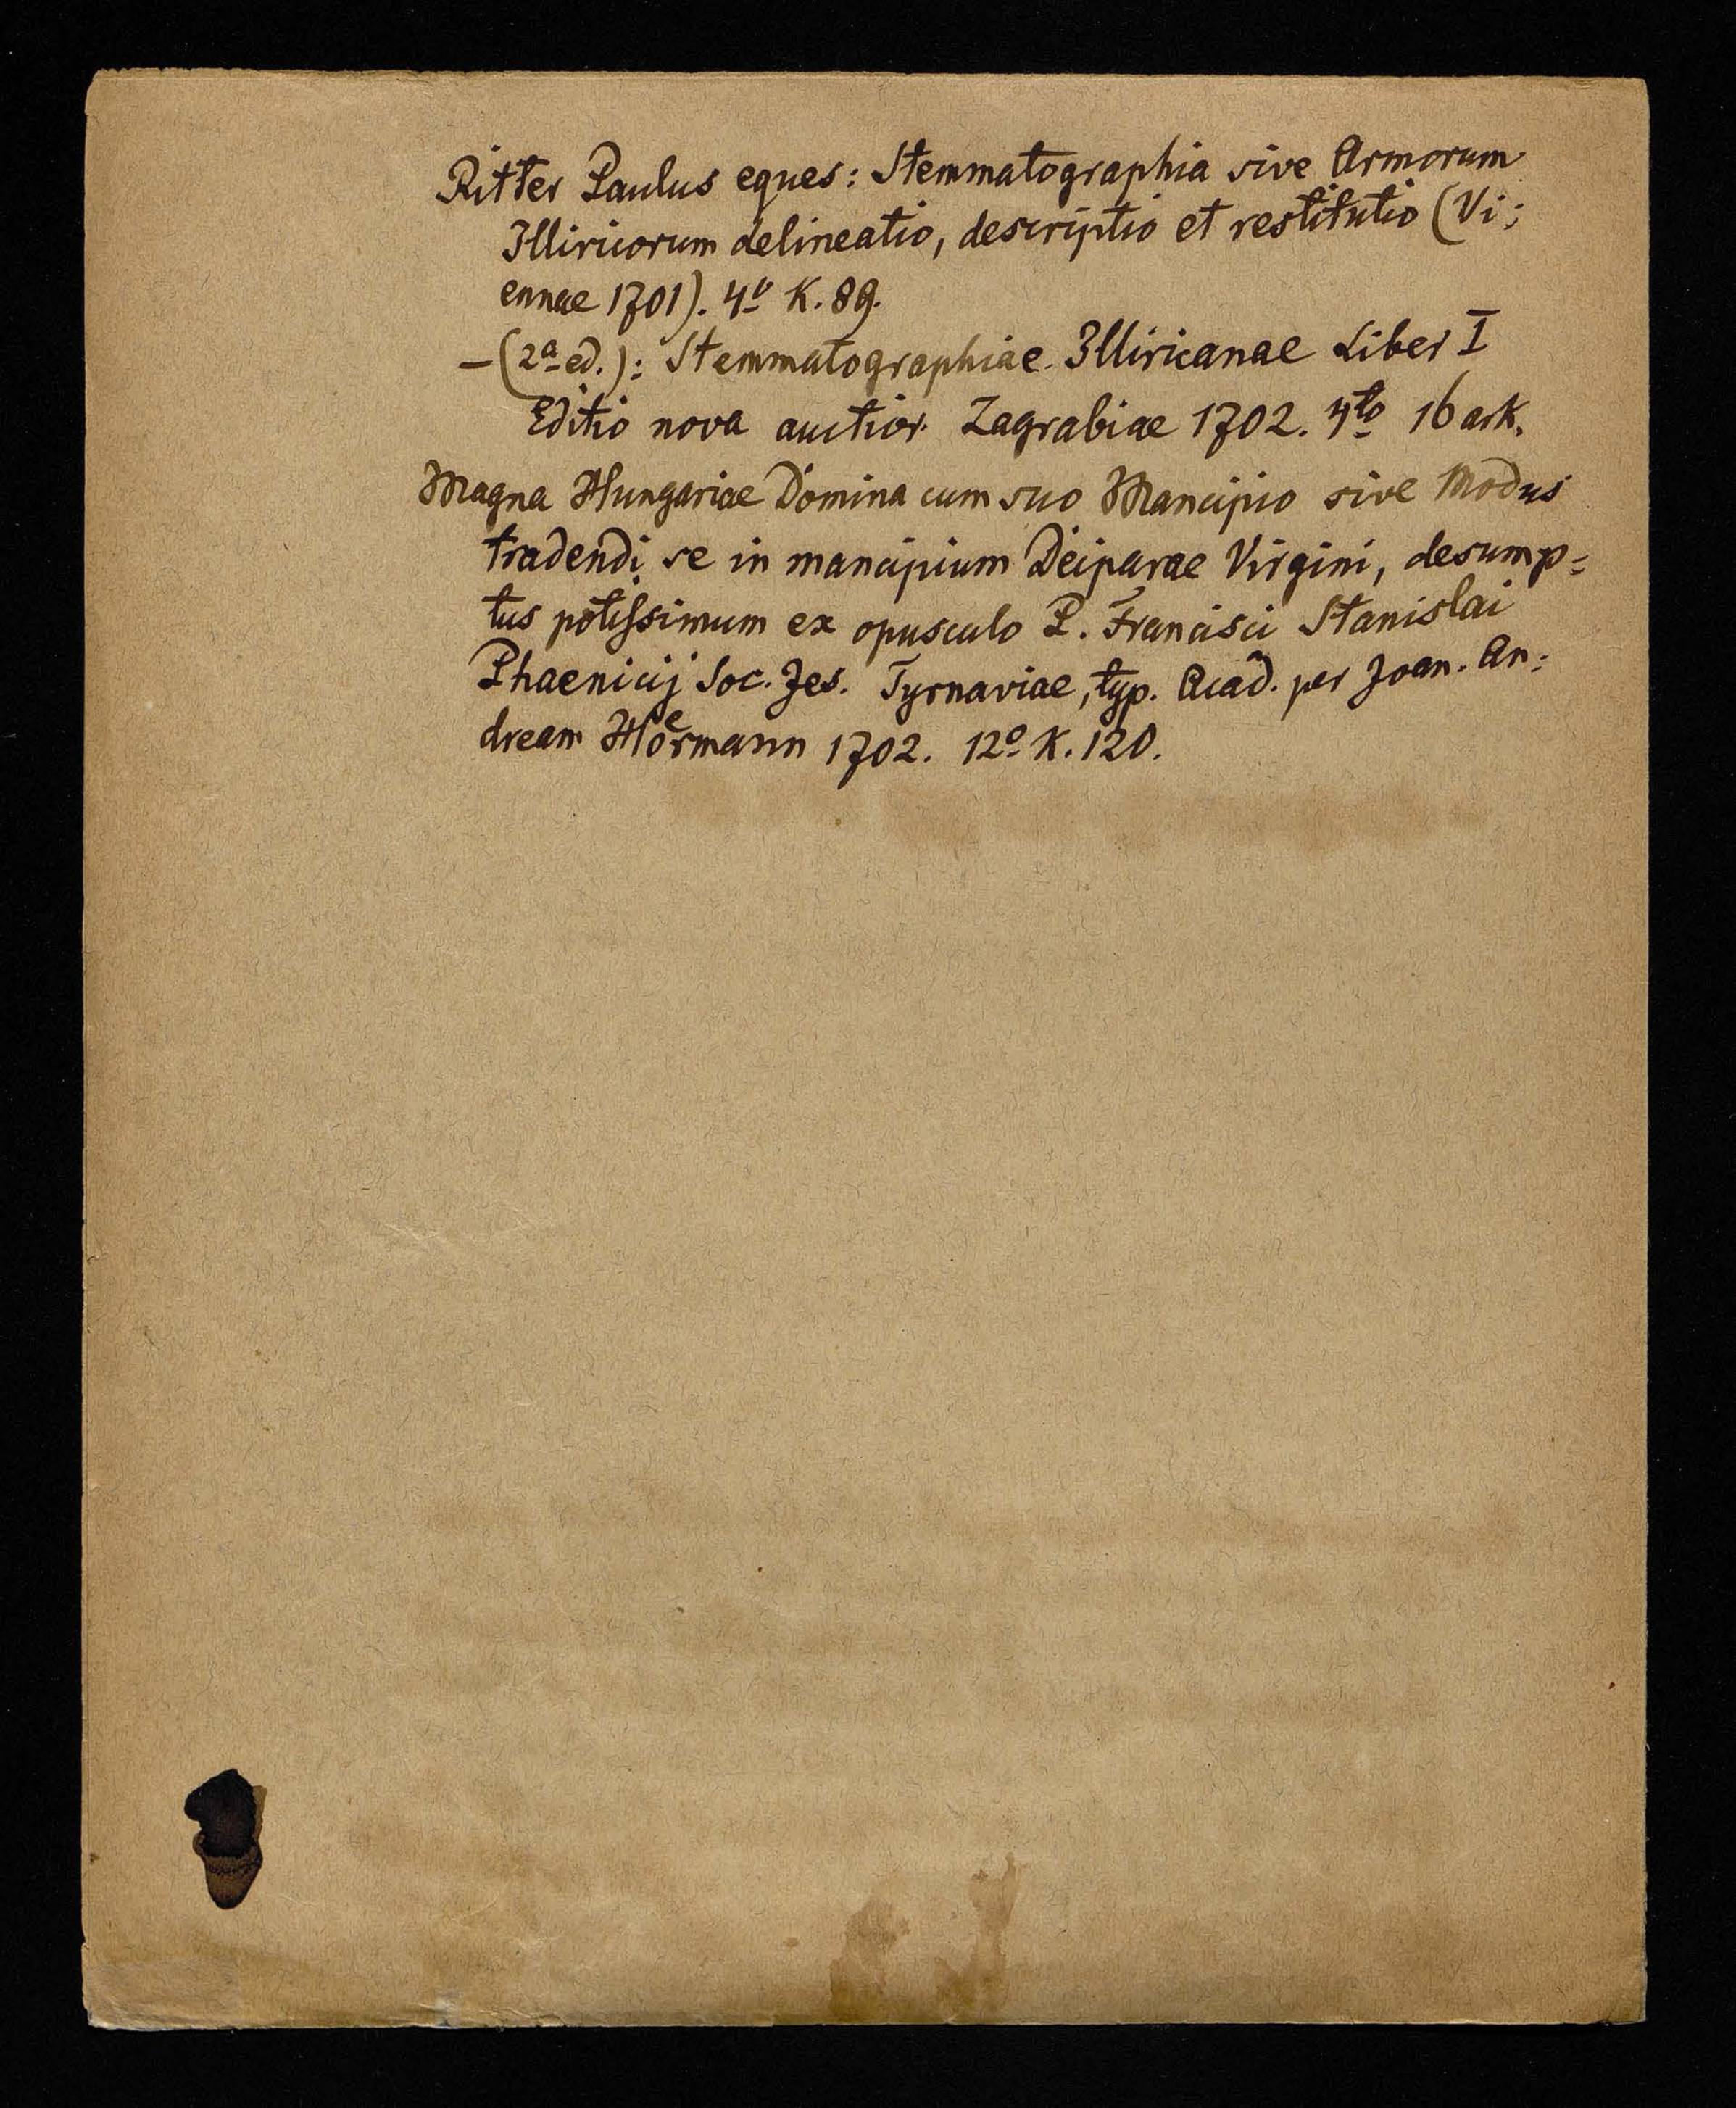 Ritter Paulus eques: Stemmatographia sive Armorum
Illiricorum delineatio, descriptio et restitutio (Vi=
ennae 1701). 4º K. 89.
– (2ª ed.): Stemmatographiae Illiricanae Liber I
Editio nova auctior. Zagrabiae 1702. 4to 16 ark.
Magna Hungariae Domina cum suo Mancipio sive Modus
tradendi se in mancipium Deiparae Virgini, desump=
tus potissimum ex opusculo P. Francisci Stanislai
Phaenicij Soc. Jes. Tyrnaviae, typ. Acad. per Joan. An=
dream Hoͤrmann 1702. 12º K. 120.